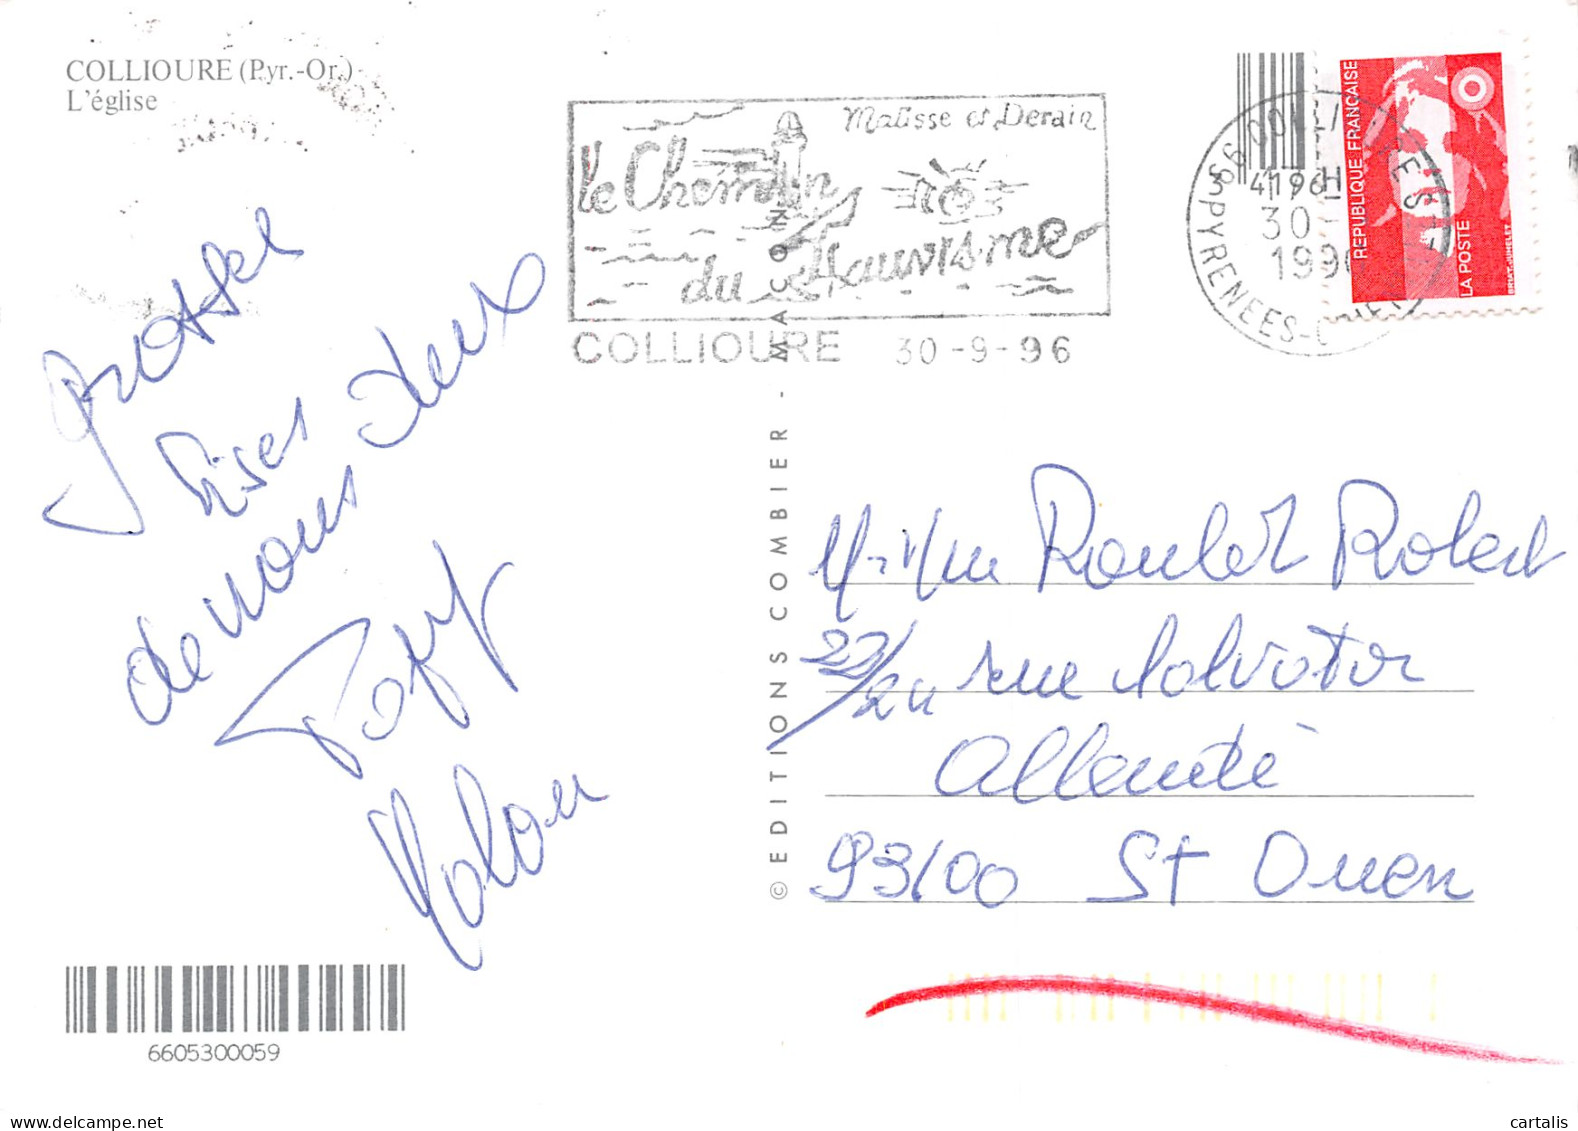 COLLIOURE (Pyr.-Or.)
L'église
Matisse et Derain
le Chemin
du Fauvisme
COLLIOURE 30-9-96
66 COLLIOURE
PYRENEES-
30
199
REPUBLIQUE FRANÇAISE
LA POSTE
Grosses
bises
de nous deux
Papy
© EDITIONS COMBIER - MACON
Mr Mme Roulet Robert
22/24 rue Salvator
Allendé
93100 St Ouen
6605300059
www.cartalis.com